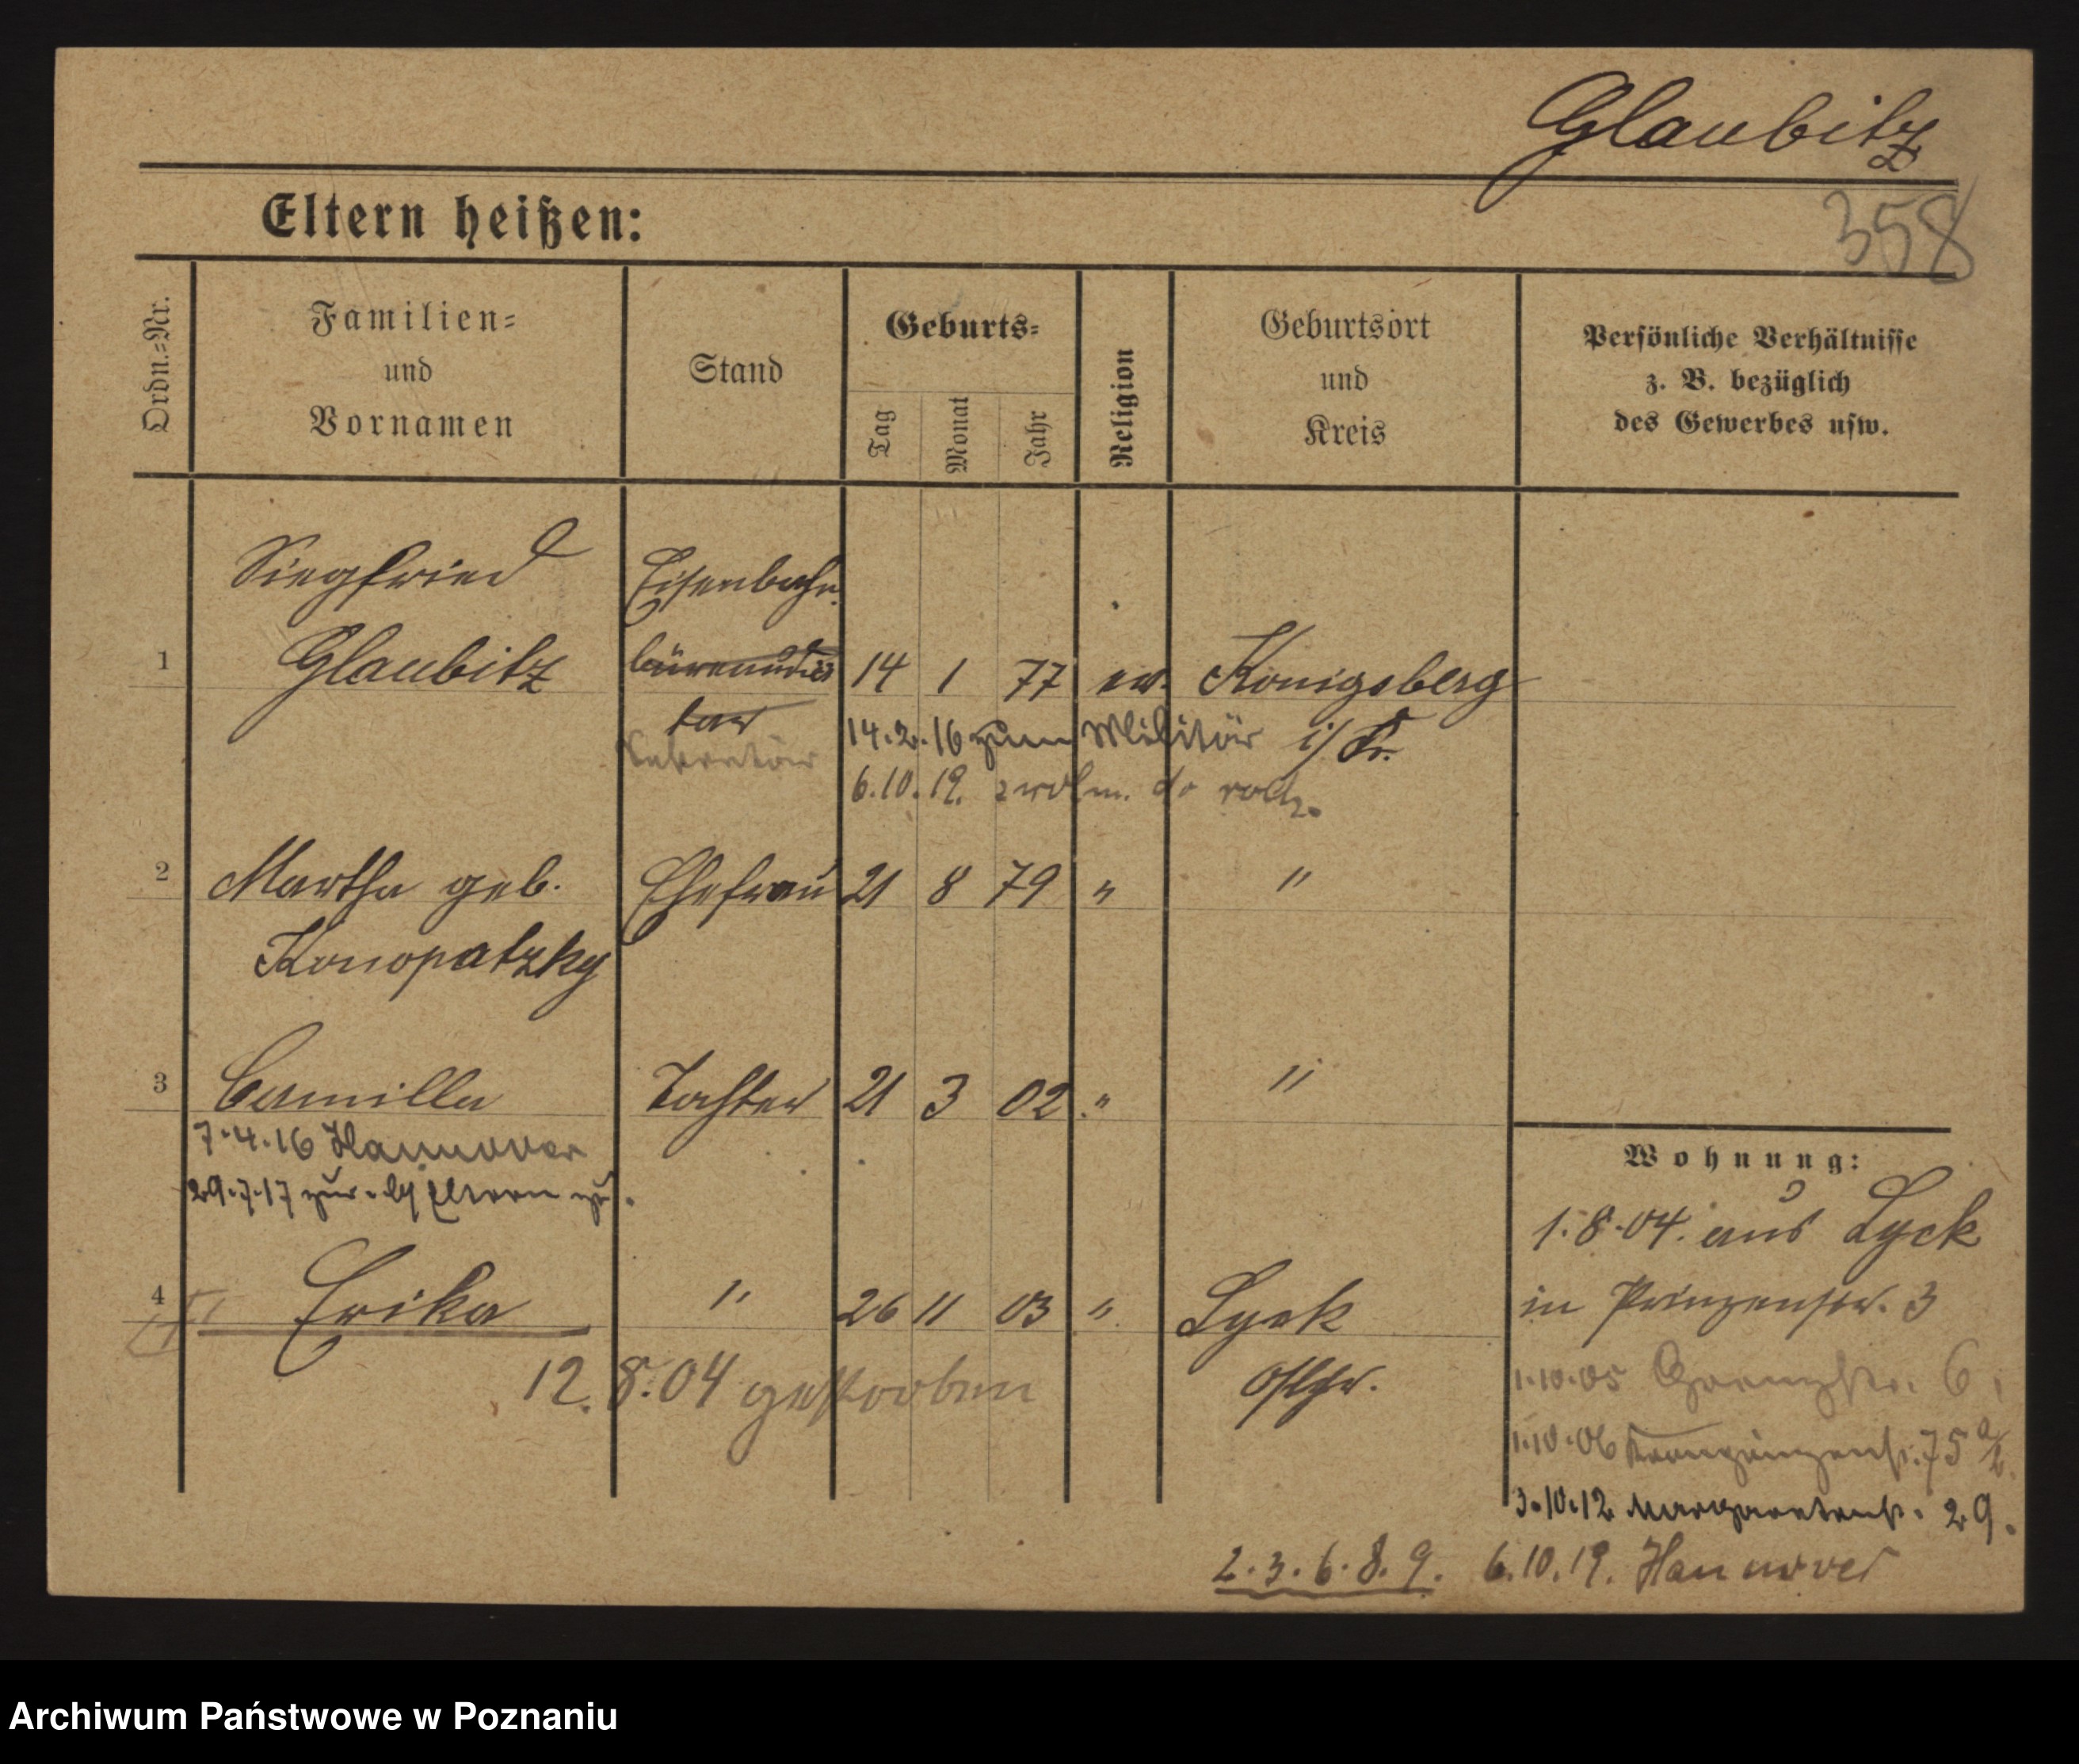 Glaubitz
358
Eltern heißen:
Ordn.=Nr.
Familien=
und
Vornamen
Stand
Geburts=
Tag
Monat
Jahr
Religion
Geburtsort
und
Kreis
Persönliche Verhältnisse
z. B. bezüglich
des Gewerbes usw.
Siegfried Eisenbahn
1 Glaubitz 14 1 77 ev. Königsberg
i/Pr.
Sekretär 14.2.16 zum Militär
6.10.19.
2 Martha geb. Ehefrau 21 8 79 " "
Konopatzky
3 Camilla Tochter 21 3 02 " "
7.4.16 Hannover
29.7.17 Eltern
4 Erika " 26 11 03 " Lyck
12.8.04 gestorben Ostpr.
Wohnung:
1.8.04. aus Lyck
in Prinzenstr. 3
1.10.05 6,
1.10.06 Kronprinzenst. 75
3.10.12 Margaretenst. 29.
2.3.6.8.9. 6.10.19. Hannover
Archiwum Państwowe w Poznaniu